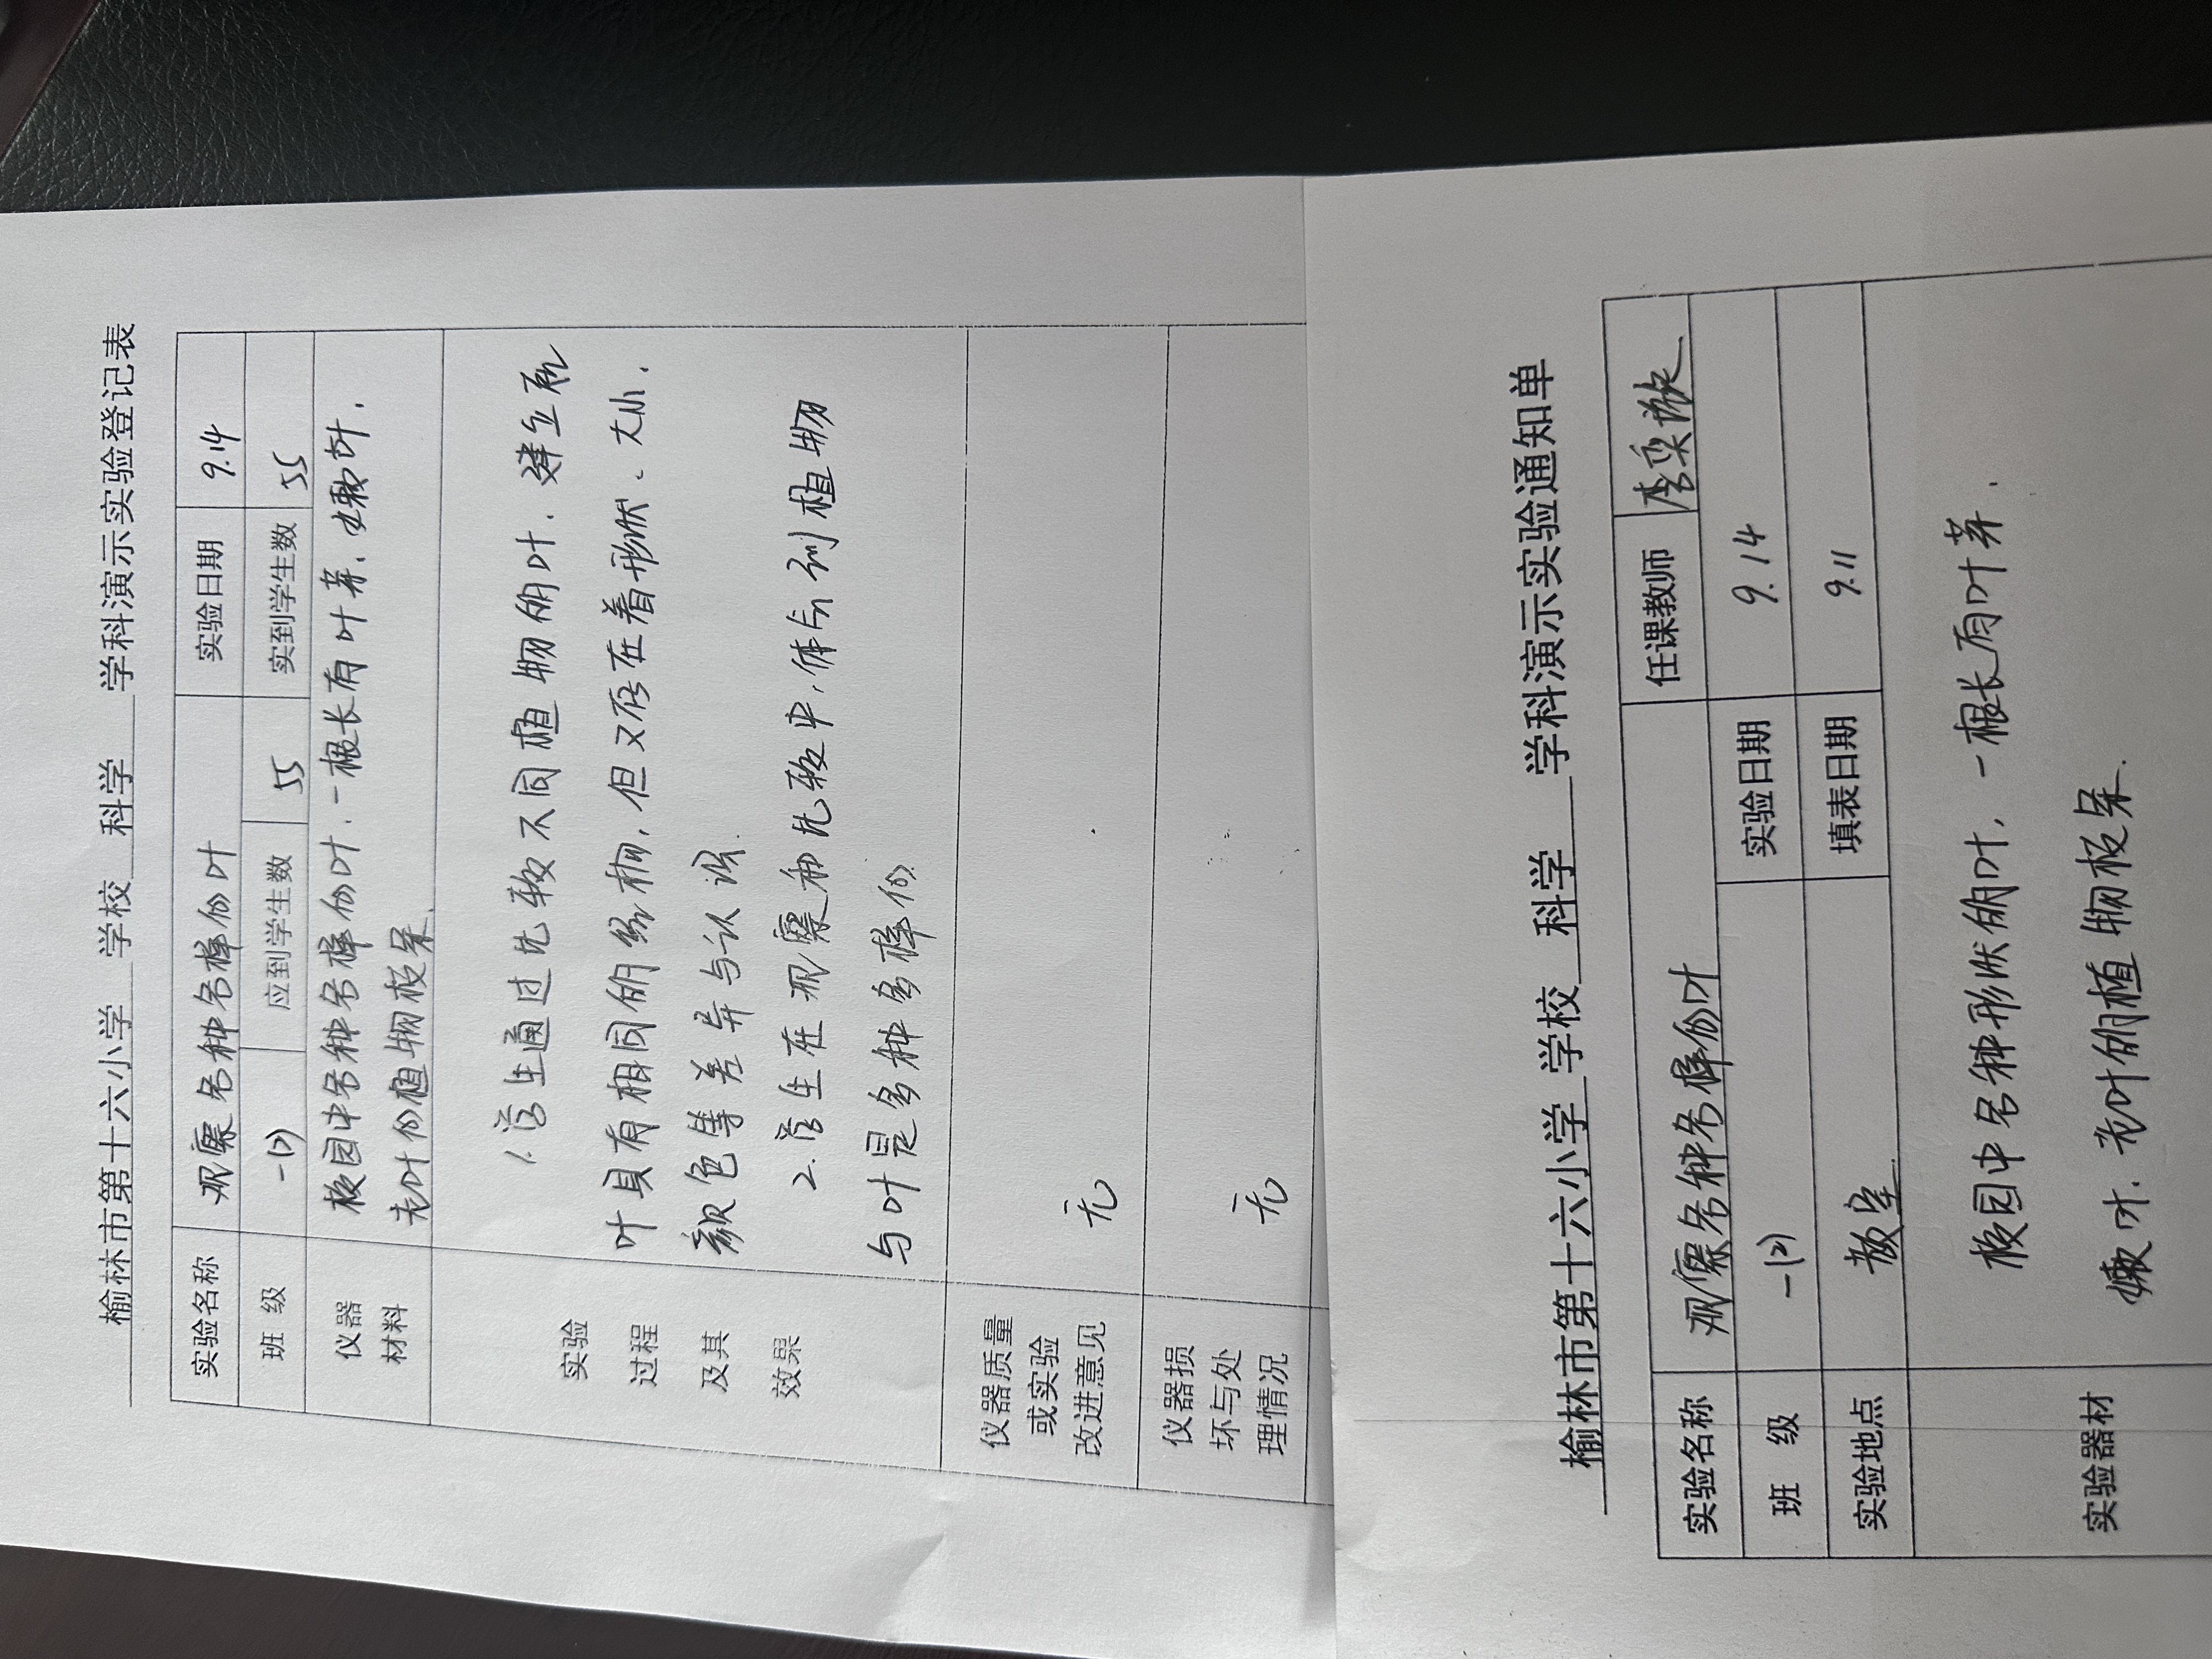 榆林市第十六小学 学校 科学 学科演示实验登记表
实验名称 观察各种各样的叶 实验日期 9.14
班 级 一(2) 应到学生数 55 实到学生数 55
仪器 校园中各种各样的叶,一根长有叶芽、嫩叶、
材料 老叶的植物枝条.
实验 1.学生通过比较不同植物的叶,建立起
过程 叶具有相同的结构,但又存在着形状、大小、
及其 颜色等差异与认识.
效果 2.学生在观察和比较中,体会到植物
与叶是多种多样的.
仪器质量
或实验
改进意见 无
仪器损
坏与处
理情况 无
榆林市第十六小学 学校 科学 学科演示实验通知单
实验名称 观察各种各样的叶 任课教师 李奕
班 级 一(2) 实验日期 9.14
实验地点 教室. 填表日期 9.11
实验器材 校园中各种形状的叶,一根长有叶芽、
嫩叶、老叶的植物枝条.